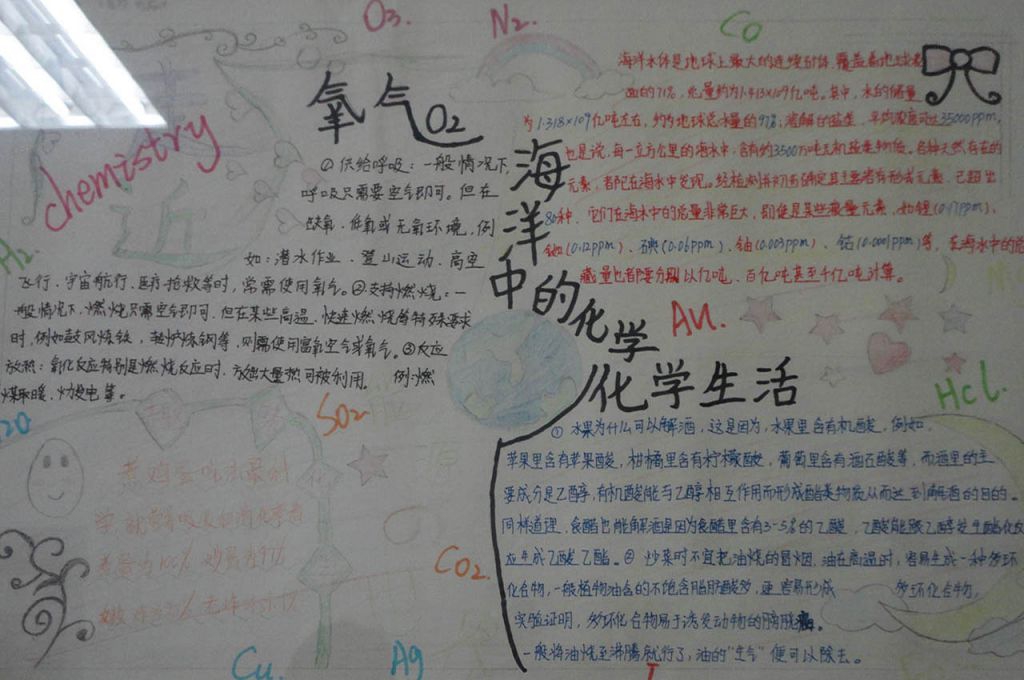 O3.
N2.
CO
chemistry
氧气O2
①供给呼吸：一般情况下,
呼吸只需要空气即可。但在
缺氧、低氧或无氧环境，例
如：潜水作业、登山运动、高空
飞行、宇宙航行、医疗抢救等时，常需使用氧气。②支持燃烧：一
般情况下，燃烧只需空气即可，但在某些高温、快速燃烧等特殊要求
时，例如鼓风炼铁，转炉炼钢等，则需使用富氧空气或氧气。③反应
放热：氧化反应特别是燃烧反应时，放出大量热可被利用。例：燃
煤取暖、火力发电等。
海洋中的化学
海洋水体是地球上最大的连续矿体，覆盖着地球表
面的71%，总量约为1.413×109亿吨。其中，水的储量
为1.318×109亿吨左右，约为地球总水量的97%；溶解的盐类，平均浓度可达35000ppm,
也是说，每一立方公里的海水中，含有约3500万吨无机盐类物质。各种天然存在的
元素，都已在海水中发现。经检测并初步确定其主要者有形式元素，已超出
80种，它们在海水中的总量非常巨大，即使是某些微量元素，如锂(0.17ppm)、
铷(0.12ppm)、碘(0.06ppm)、铀(0.003ppm)、钴(0.0001ppm)等，在海水中的总
藏量也都要分别以亿吨、百亿吨甚至千亿吨计算。
Au.
HCl.
H2.
SO2
CO2.
Cu.
Ag
化学生活
①水果为什么可以解酒，这是因为，水果里含有机酸，例如,
苹果里含有苹果酸，柑橘里含有柠檬酸，葡萄里含有酒石酸等，而酒里的主
要成分是乙醇，有机酸能与乙醇相互作用而形成酯类物质从而达到解酒的目的。
同样道理，食醋也能解酒是因为食醋里含有3-5%的乙酸，乙酸能跟乙醇发生酯化反
应生成乙酸乙酯。②炒菜时不宜把油烧的冒烟，油在高温时，容易生成一种多环
化合物，一般植物油含的不饱和脂肪酸多，更容易形成 多环化合物,
实验证明，多环化合物易于诱发动物的膀胱癌。
一般将油烧至沸腾就行了，油的“生气”便可以除去。